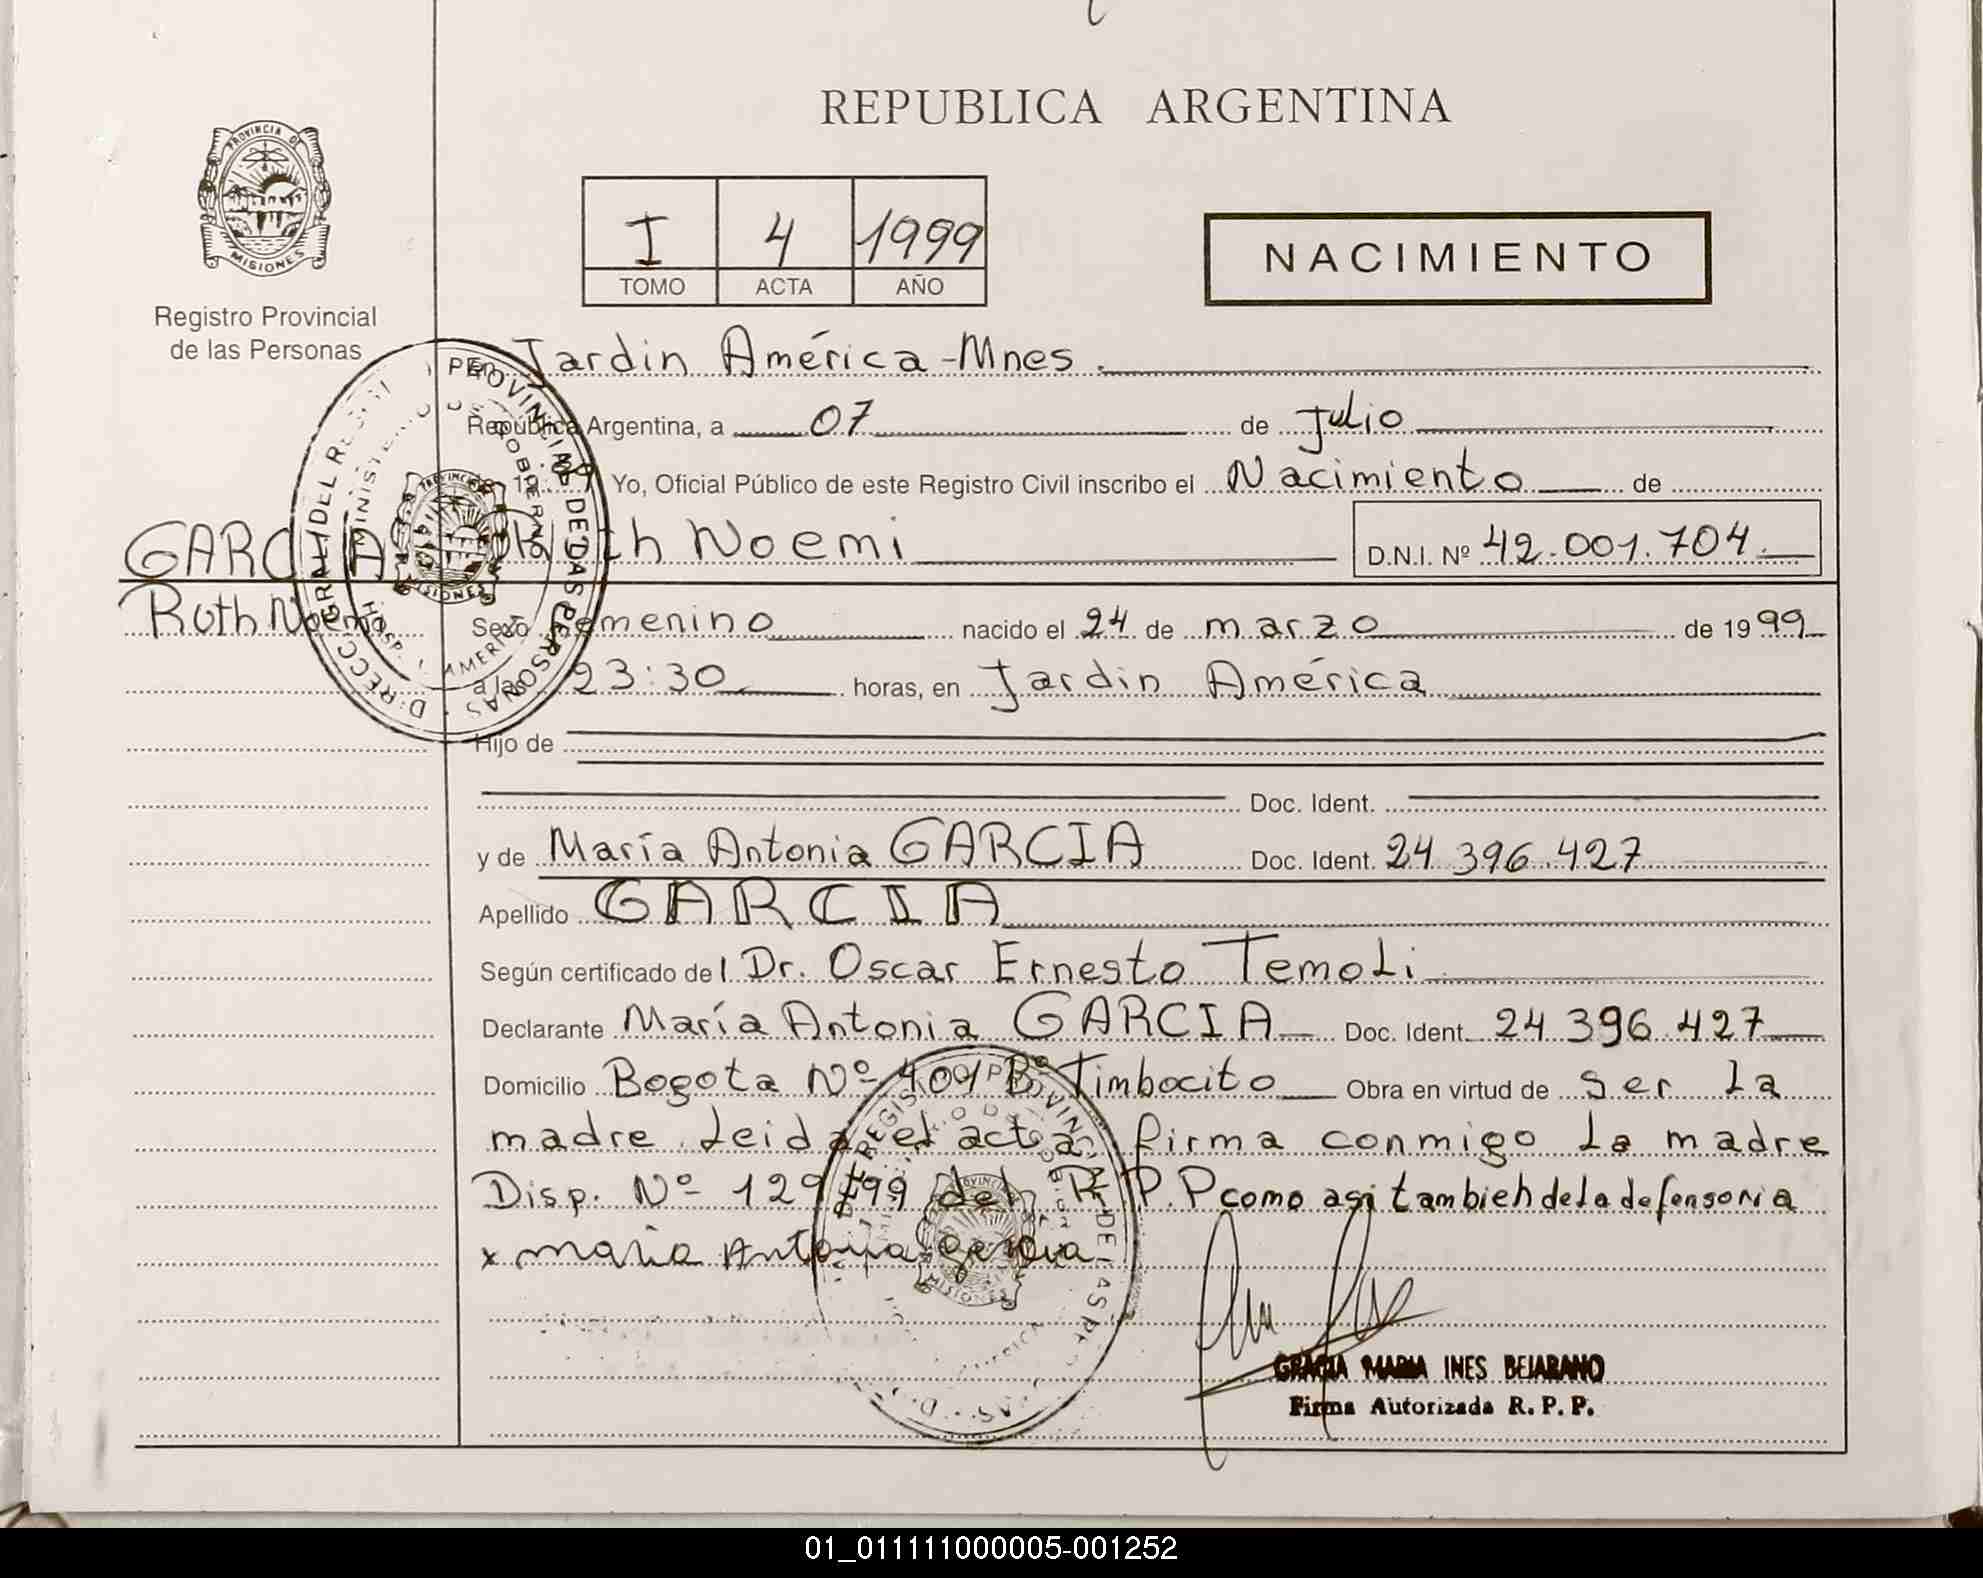 REPUBLICA ARGENTINA
PROVINCIA DE
MISIONES
Registro Provincial
de las Personas
I 4 1999
TOMO ACTA AÑO
NACIMIENTO
En Jardin América-Mnes.
República Argentina, a 07 de Julio
Yo, Oficial Público de este Registro Civil inscribo el Nacimiento de
GARCIA Noemi
D.N.I. Nº 42.001.704.
Ruth Noemi
Sexo Femenino nacido el 24 de marzo de 1999
a las 23:30 horas, en Jardin América
Hijo de
Doc. Ident.
y de María Antonia GARCIA Doc. Ident. 24 396.427
Apellido GARCIA
Según certificado del Dr. Oscar Ernesto Temoli
Declarante María Antonia GARCIA Doc. Ident. 24 396.427
Domicilio Bogota Nº 401 Bº Timbocito Obra en virtud de ser la
madre. Leida el acta firma conmigo la madre
Disp. Nº 129/99 del R.P.P como asi tambien de la defensoria
x maria Antonia garcia
GRACIA MARIA INES BEJARANO
Firma Autorizada R. P. P.
01_011111000005-001252